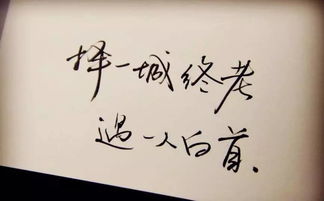 择一城终老
遇一人白首.